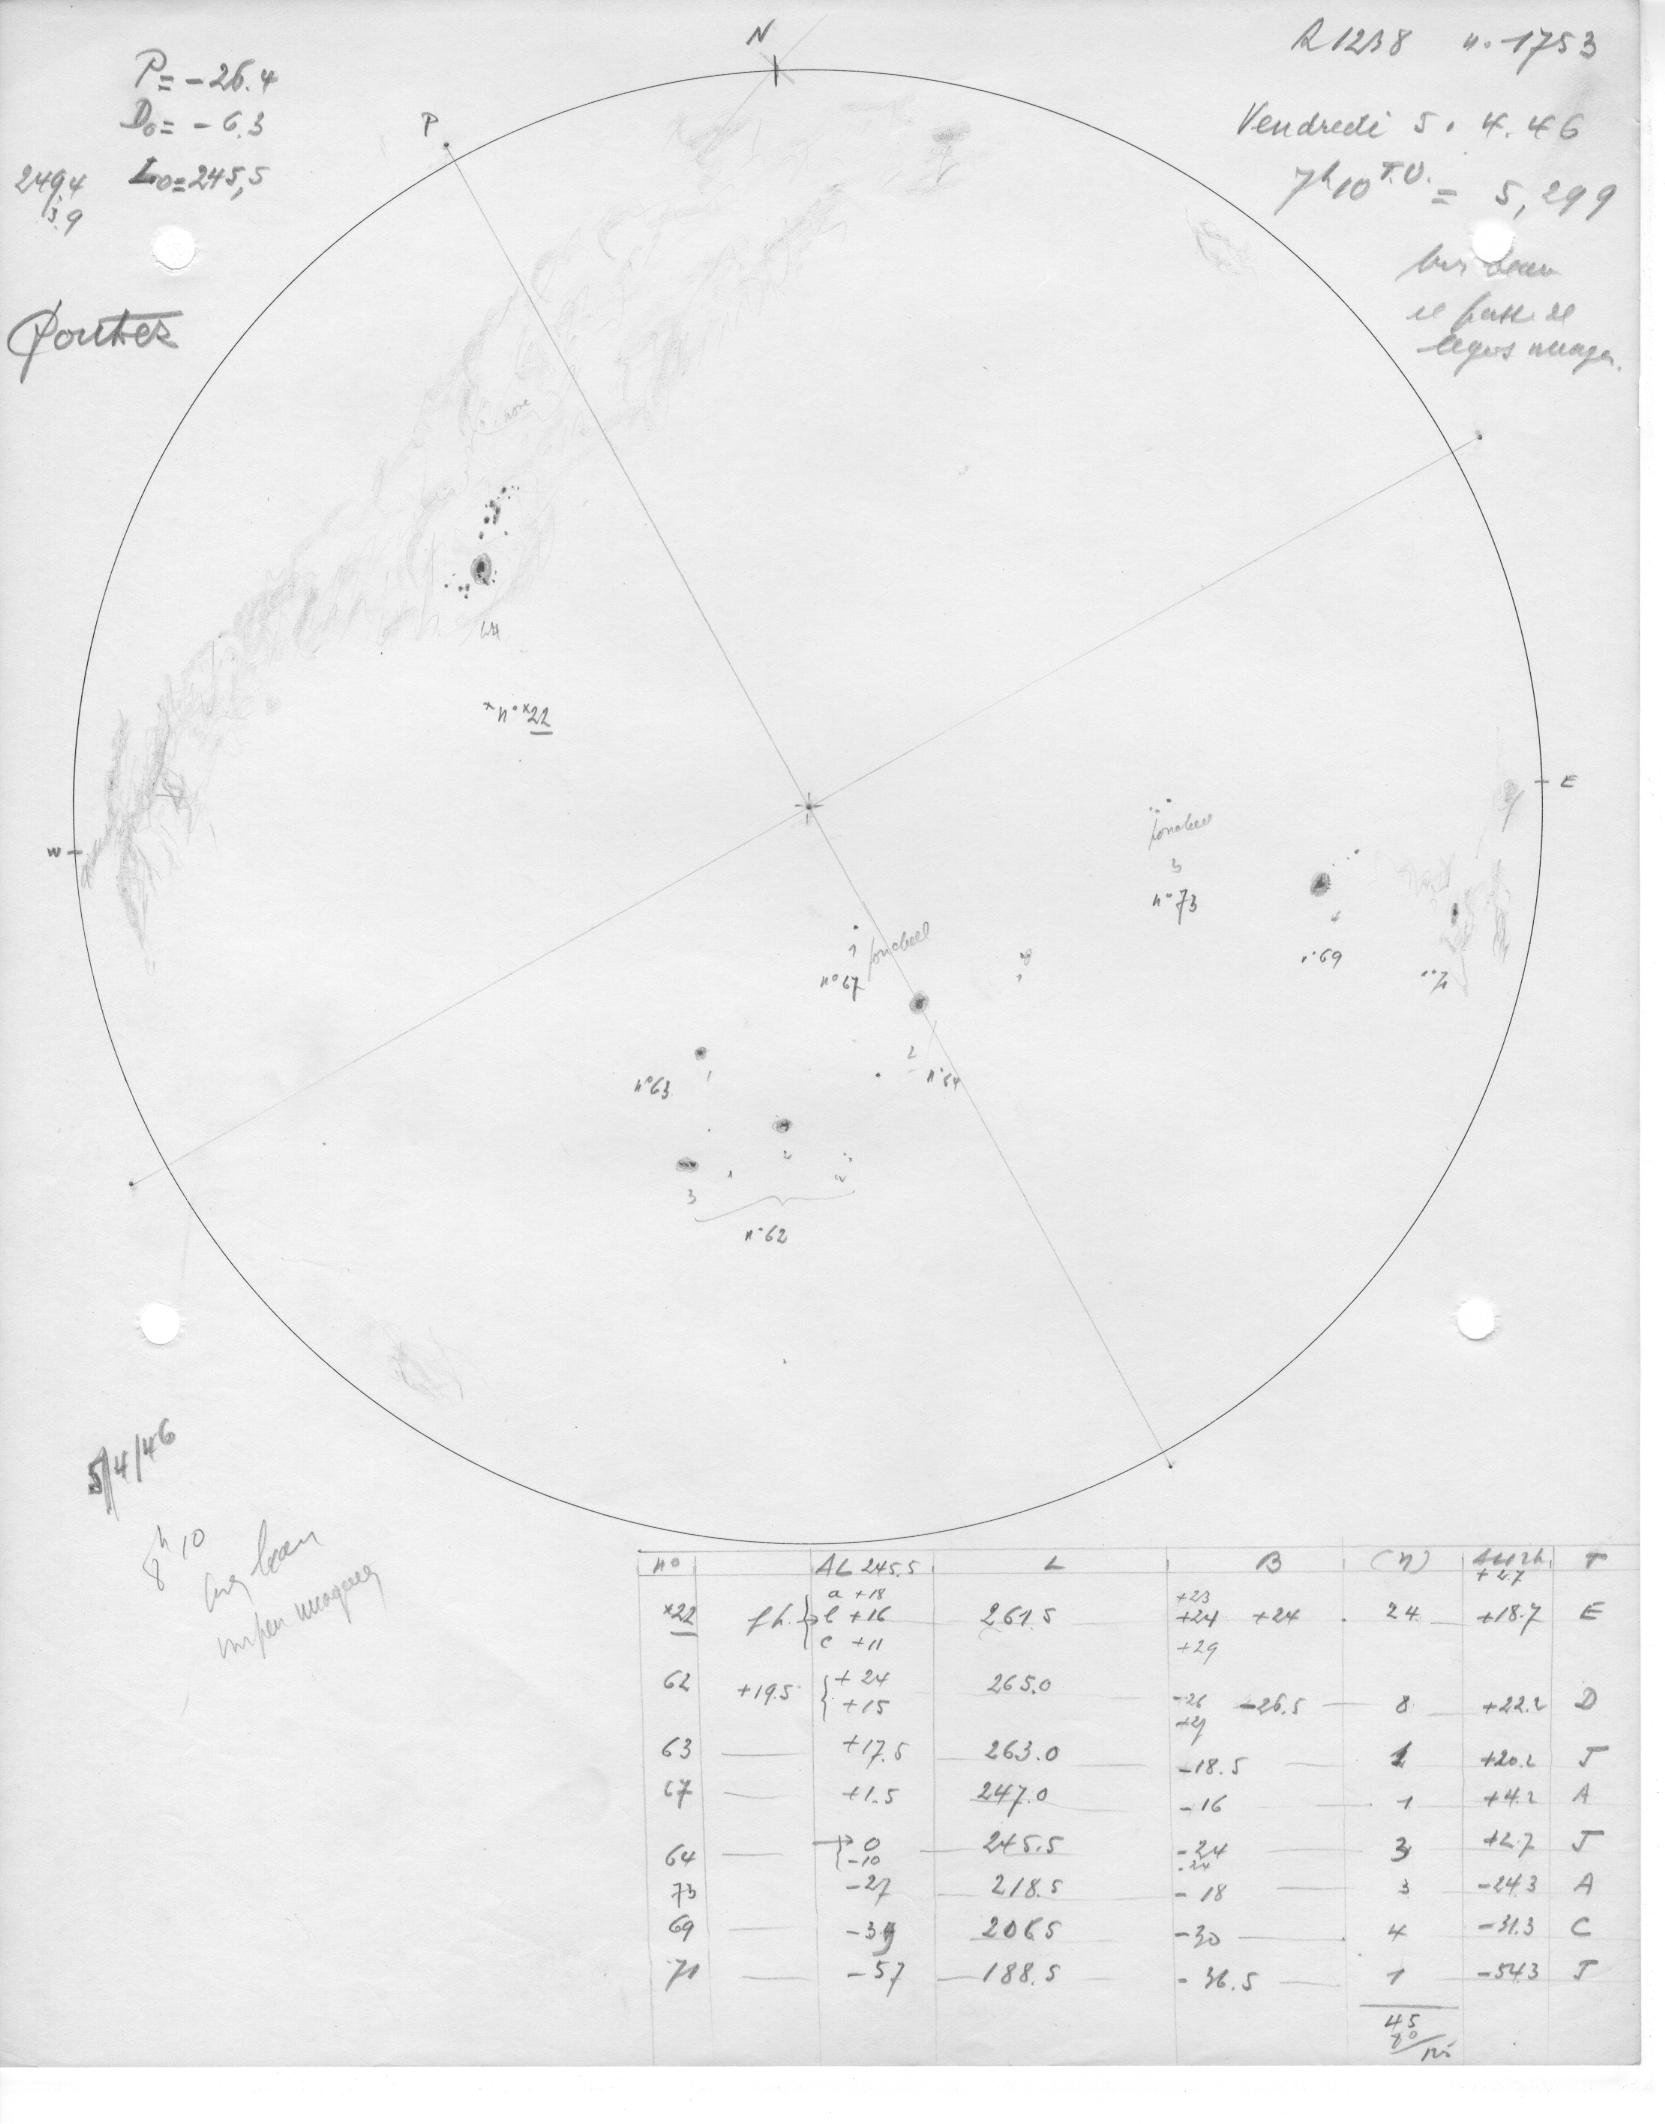 N
P
W
E
P = -26.4
D0 = -6.3
L0 = 245,5
249,4
3.9
R1238 n. 1753
Vendredi 5. 4. 46
7h10 T.U. = 5,299
nuages
n° x22
n° 73
3
n° 67
1
n° 69
4
n° 71
n° 63
1
n° 64
2
2
3
n° 62
5/4/46
8h10
beau
n° AL 245.5 L B (N) T
+2.7
x22 a +18 +23
b +16 261.5 +24 +24 24 +18.7 E
c +11 +29
62 +19.5 +24 265.0 -26 -26.5 8 +22.2 D
+15
63 +17.5 263.0 -18.5 1 +20.2 J
67 +1.5 247.0 -16 1 +4.2 A
64 0 245.5 -24 3 +2.7 J
-10 -24
73 -27 218.5 -18 3 -24.3 A
69 -39 206.5 -30 4 -31.3 C
71 -57 188.5 -36.5 1 -54.3 J
45
80
125